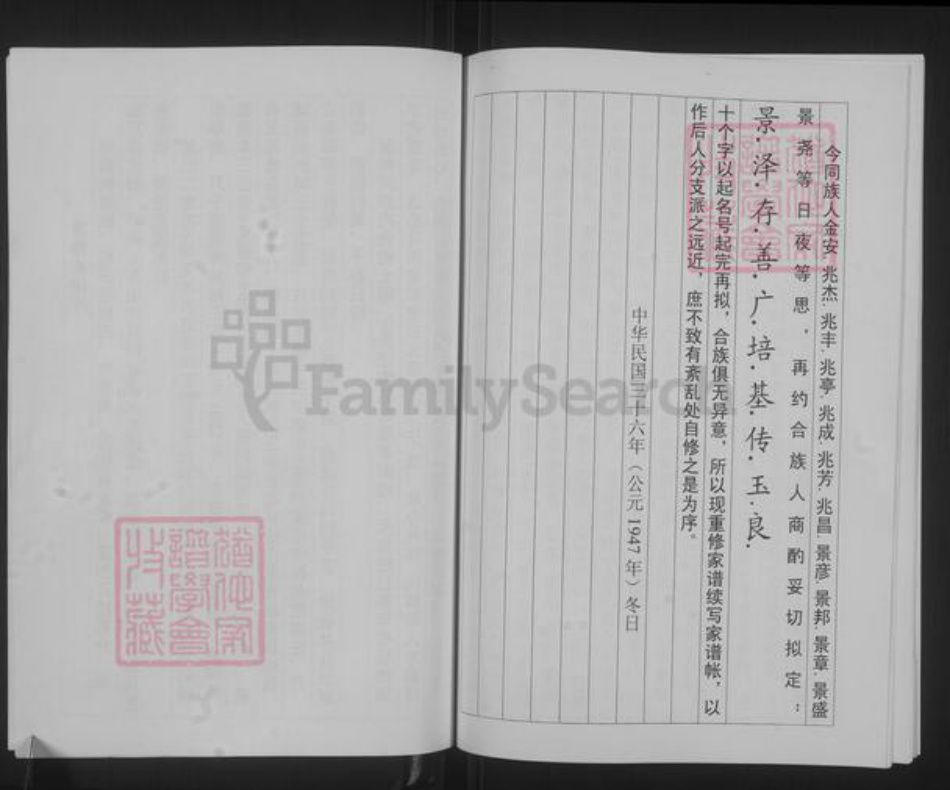 今同族人金安.兆杰.兆丰.兆亭.兆成.兆芳.兆昌.景彦.景邦.景章.景盛
景尧等日夜等思，再约合族人商酌妥切拟定：
景.泽.存.善.广.培.基.传.玉.良.
十个字以起名号起完再拟，合族俱无异意，所以现重修家谱续写家谱帐，以
作后人分支派之远近，庶不致有紊乱处自修之是为序。
中华民国三十六年（公元1947年）冬日
FamilySearch
譜學會
收藏